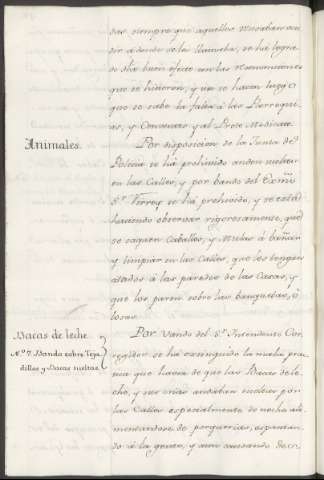 dar siempre que aquellos
dir à donde se la llamaba, se ha logra-
do del buen efecto en las
que se hicieron, y no se hacen luego
que se sabe la falta à los Parroqui-
as, y Conventos y al Proto Medicato
Animales.
Por disposicion de la Junta de
Policia se ha prohivido anden sueltos
en las Calles, y por bando del Exmo
Sr. Virrey se ha prohivido, y se está
haciendo observar rigorosamente, que
se saquen Caballos, y Mulas à bañar
y limpiar en las Calles, que los tengan
atados à las paredes de las Casas, y
que los paren sobre las banquetas, ò
losas.
Bacas de leche
Nº 7. Bando sobre Tepa-
dillas y Bacas sueltas.
Por Vando del Sr. Intendente Cor-
regidor se ha extinguido la mala prac-
tica que havia de que las Bacas de le-
che, y sus crias andaban sueltas por
las Calles especialmente de noche ali-
mentandose de porquerias, espantan-
do à la gente, y aun causando da-